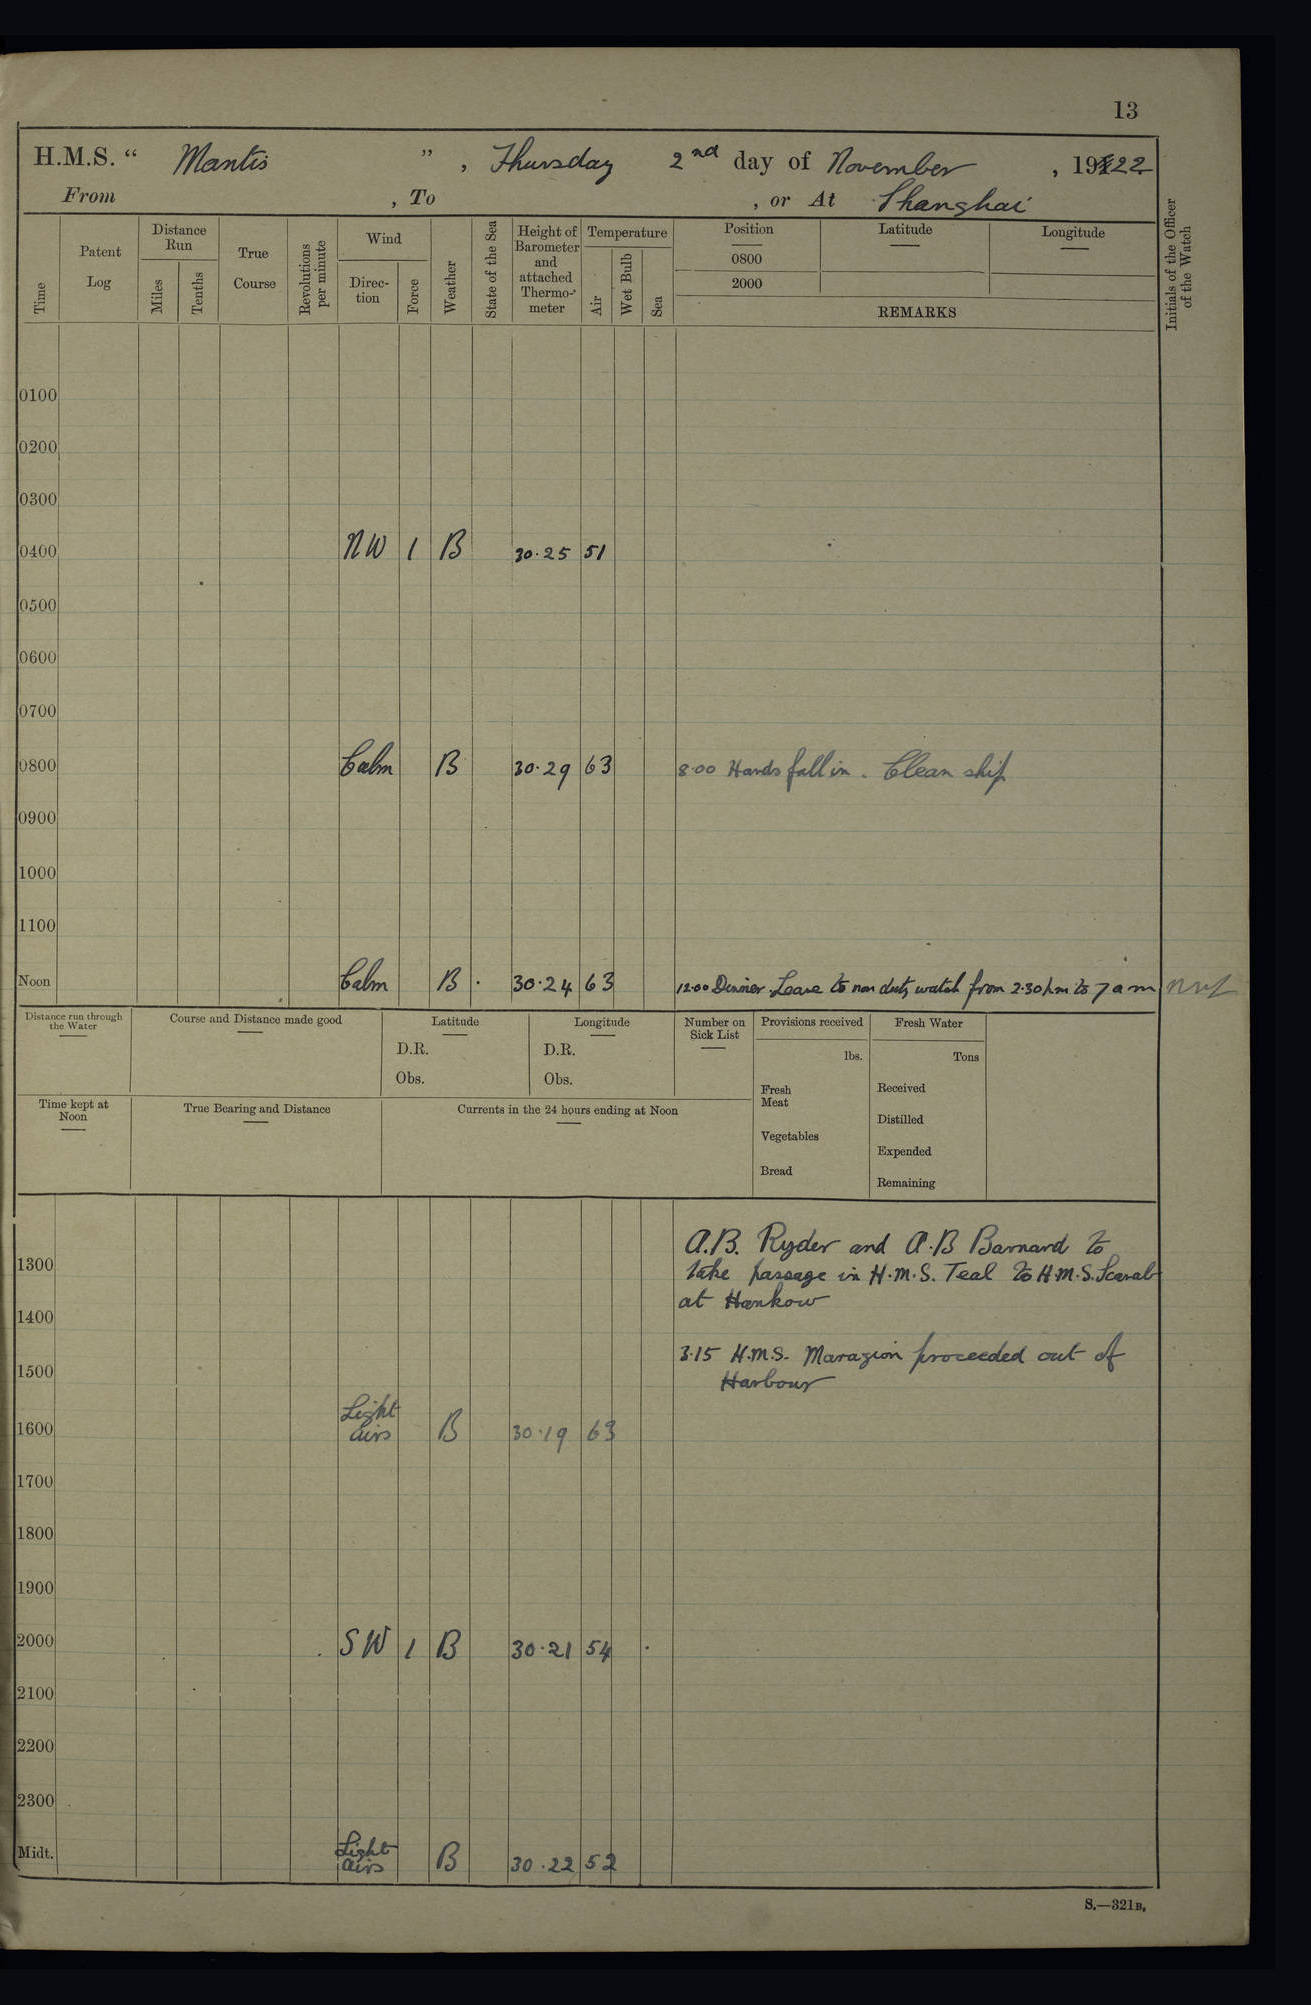 13
H.M.S. “ Mantis ” , Thursday 2nd day of November , 1922
From , To , or At Shanghai
Time
Patent Log
Distance Run
Miles
Tenths
True Course
Revolutions per minute
Wind
Direc-tion
Force
Weather
State of the Sea
Height of Barometer and attached Thermo-meter
Temperature
Air
Wet Bulb
Sea
Position
0800
2000
Latitude
Longitude
REMARKS
Initials of the Officer of the Watch
0100
0200
0300
0400 NW 1 B 30.25 51
0500
0600
0700
0800 Calm B 30.29 63 8.00 Hands fall in. Clean ship
0900
1000
1100
Noon Calm B 30.24 63 12.00 Dinner. Leave to non duty watch from 2.30 pm to 7 a m
Distance run through the Water
Course and Distance made good
Latitude
D.R.
Obs.
Longitude
D.R.
Obs.
Number on Sick List
Provisions received
lbs.
Fresh Meat
Vegetables
Bread
Fresh Water
Tons
Received
Distilled
Expended
Remaining
Time kept at Noon
True Bearing and Distance
Currents in the 24 hours ending at Noon
A.B. Ryder and A.B Barnard to
1300 take passage in H.M.S. Teal to H.M.S. Scarab
at Hankow
1400
3.15 H.M.S. Marazion proceeded out of
1500 Harbour
1600 Light airs B 30.19 63
1700
1800
1900
2000 SW 1 B 30.21 54
2100
2200
2300
Midt. Light airs B 30.22 52
S.—321B.